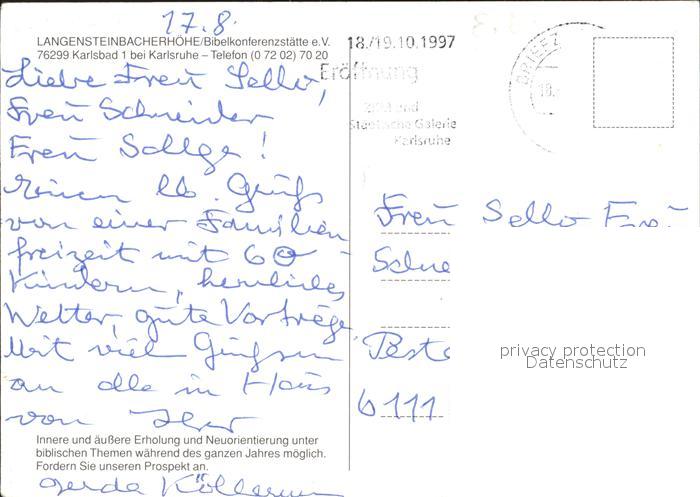 17.8.
LANGENSTEINBACHERHÖHE/Bibelkonferenzstätte e.V.
76299 Karlsbad 1 bei Karlsruhe – Telefon (0 72 02) 70 20
Liebe Frau Sello,
Frau Schneider
Frau Sollge!
Einen lb. Gruß
von einer Familien
freizeit mit 60
Kindern, herrliches
Wetter, gute Vorträge
Mit viel Grüßen
an alle im Haus
von Ihrer
Innere und äußere Erholung und Neuorientierung unter
biblischen Themen während des ganzen Jahres möglich.
Fordern Sie unseren Prospekt an.
Gerda
18./19.10.1997
Eröffnung
ZKM und
Städtische Galerie
Karlsruhe
18.
Frau Sello Frau
Schne
Post
6111
privacy protection
Datenschutz